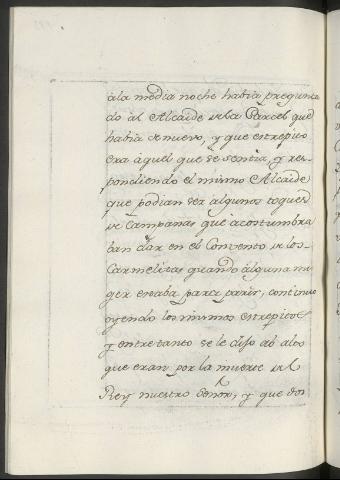 à la media noche habia pregunta
do al Alcaide de la Carcel que
habia de nuevo, y que estrepito
era aquel que se sentia, y res-
pondiendo el mismo Alcaide
que podian ser algunos toques
de Campanas que acostumbra
ban dar en el Convento de los
Carmelitas quando alguna mu
ger estaba para parir, continuò
oyendo los mismos estrepitos
y entretanto se le dijo
que eran por la muerte del
Rey nuestro Señor, y que dos